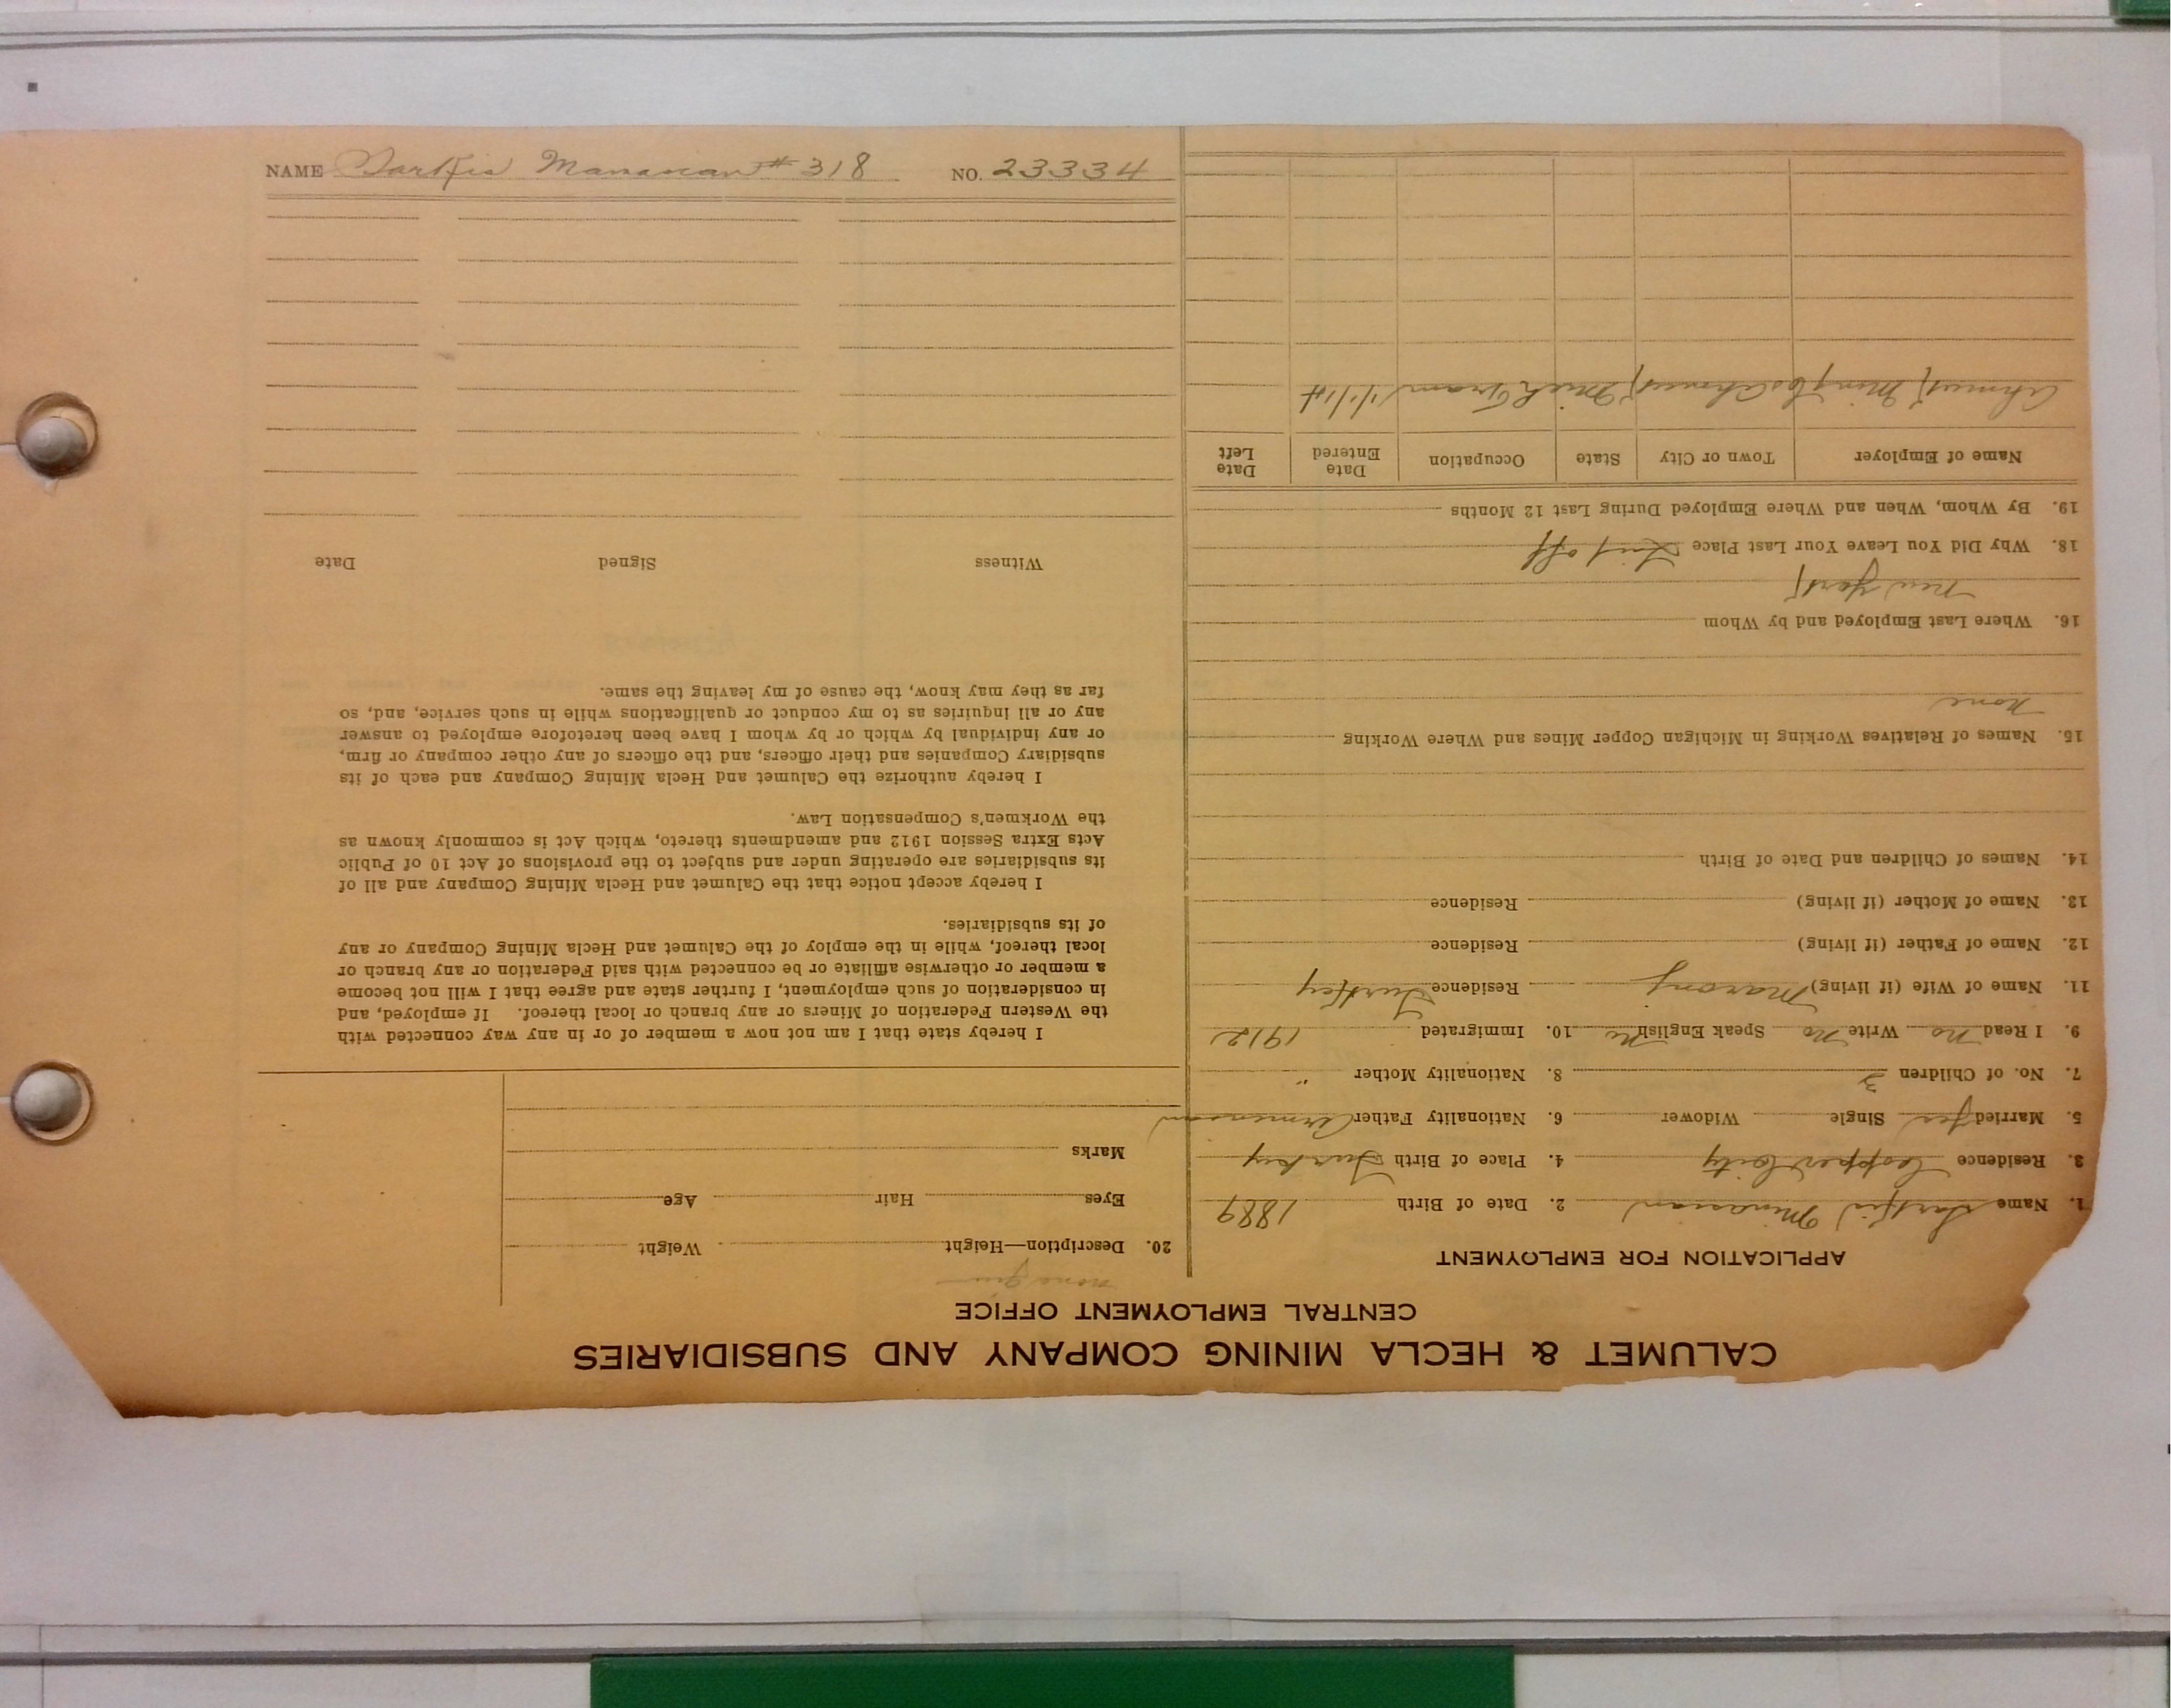 CALUMET & HECLA MINING COMPANY AND SUBSIDIARIES
CENTRAL EMPLOYMENT OFFICE
APPLICATION FOR EMPLOYMENT
1. Name Sarkis Minasian 2. Date of Birth 1889
3. Residence Copper City 4. Place of Birth Turkey
5. Married yes Single Widower 6. Nationality Father Armenian
7. No. of Children 3 8. Nationality Mother "
9. I Read no Write No Speak English No 10. Immigrated 1912
11. Name of Wife (if living) Marony Residence Turkey
12. Name of Father (if living) Residence
13. Name of Mother (if living) Residence
14. Names of Children and Date of Birth
15. Names of Relatives Working in Michigan Copper Mines and Where Working
none
16. Where Last Employed and by Whom
New York
18. Why Did You Leave Your Last Place off
19. By Whom, When and Where Employed During Last 12 Months
Name of Employer Town or City State Occupation Date Entered Date Left
Ahmeek Mining Co Ahmeek Mich Tram
20. Description—Height Weight
Eyes Hair Age
Marks
I hereby state that I am not now a member of or in any way connected with
the Western Federation of Miners or any branch or local thereof. If employed, and
in consideration of such employment, I further state and agree that I will not become
a member or otherwise affiliate or be connected with said Federation or any branch or
local thereof, while in the employ of the Calumet and Hecla Mining Company or any
of its subsidiaries.
I hereby accept notice that the Calumet and Hecla Mining Company and all of
its subsidiaries are operating under and subject to the provisions of Act 10 of Public
Acts Extra Session 1912 and amendments thereto, which Act is commonly known as
the Workmen's Compensation Law.
I hereby authorize the Calumet and Hecla Mining Company and each of its
subsidiary Companies and their officers, and the officers of any other company or firm,
or any individual by which or by whom I have been heretofore employed to answer
any or all inquiries as to my conduct or qualifications while in such service, and, so
far as they may know, the cause of my leaving the same.
Witness Signed Date
NAME Sarkis Manasian # 318 NO. 23334